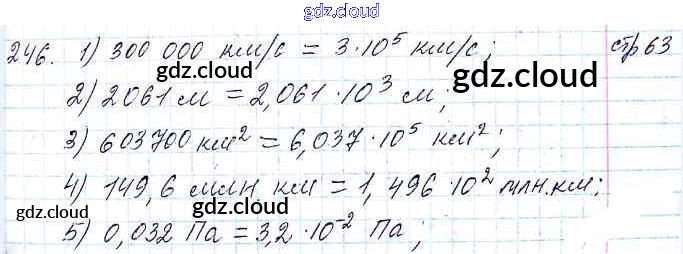 gdz.cloud
246. 1) 300 000 км/с = 3·10⁵ км/с; стр 63
gdz.cloud
gdz.cloud
2) 2061 м = 2,061·10³ м;
3) 603700 км² = 6,037·10⁵ км²;
gdz.cloud
4) 149,6 млн км = 1,496·10² млн.км;
gdz.cloud
gdz.cloud
5) 0,032 Па = 3,2·10⁻² Па;
gdz.cloud